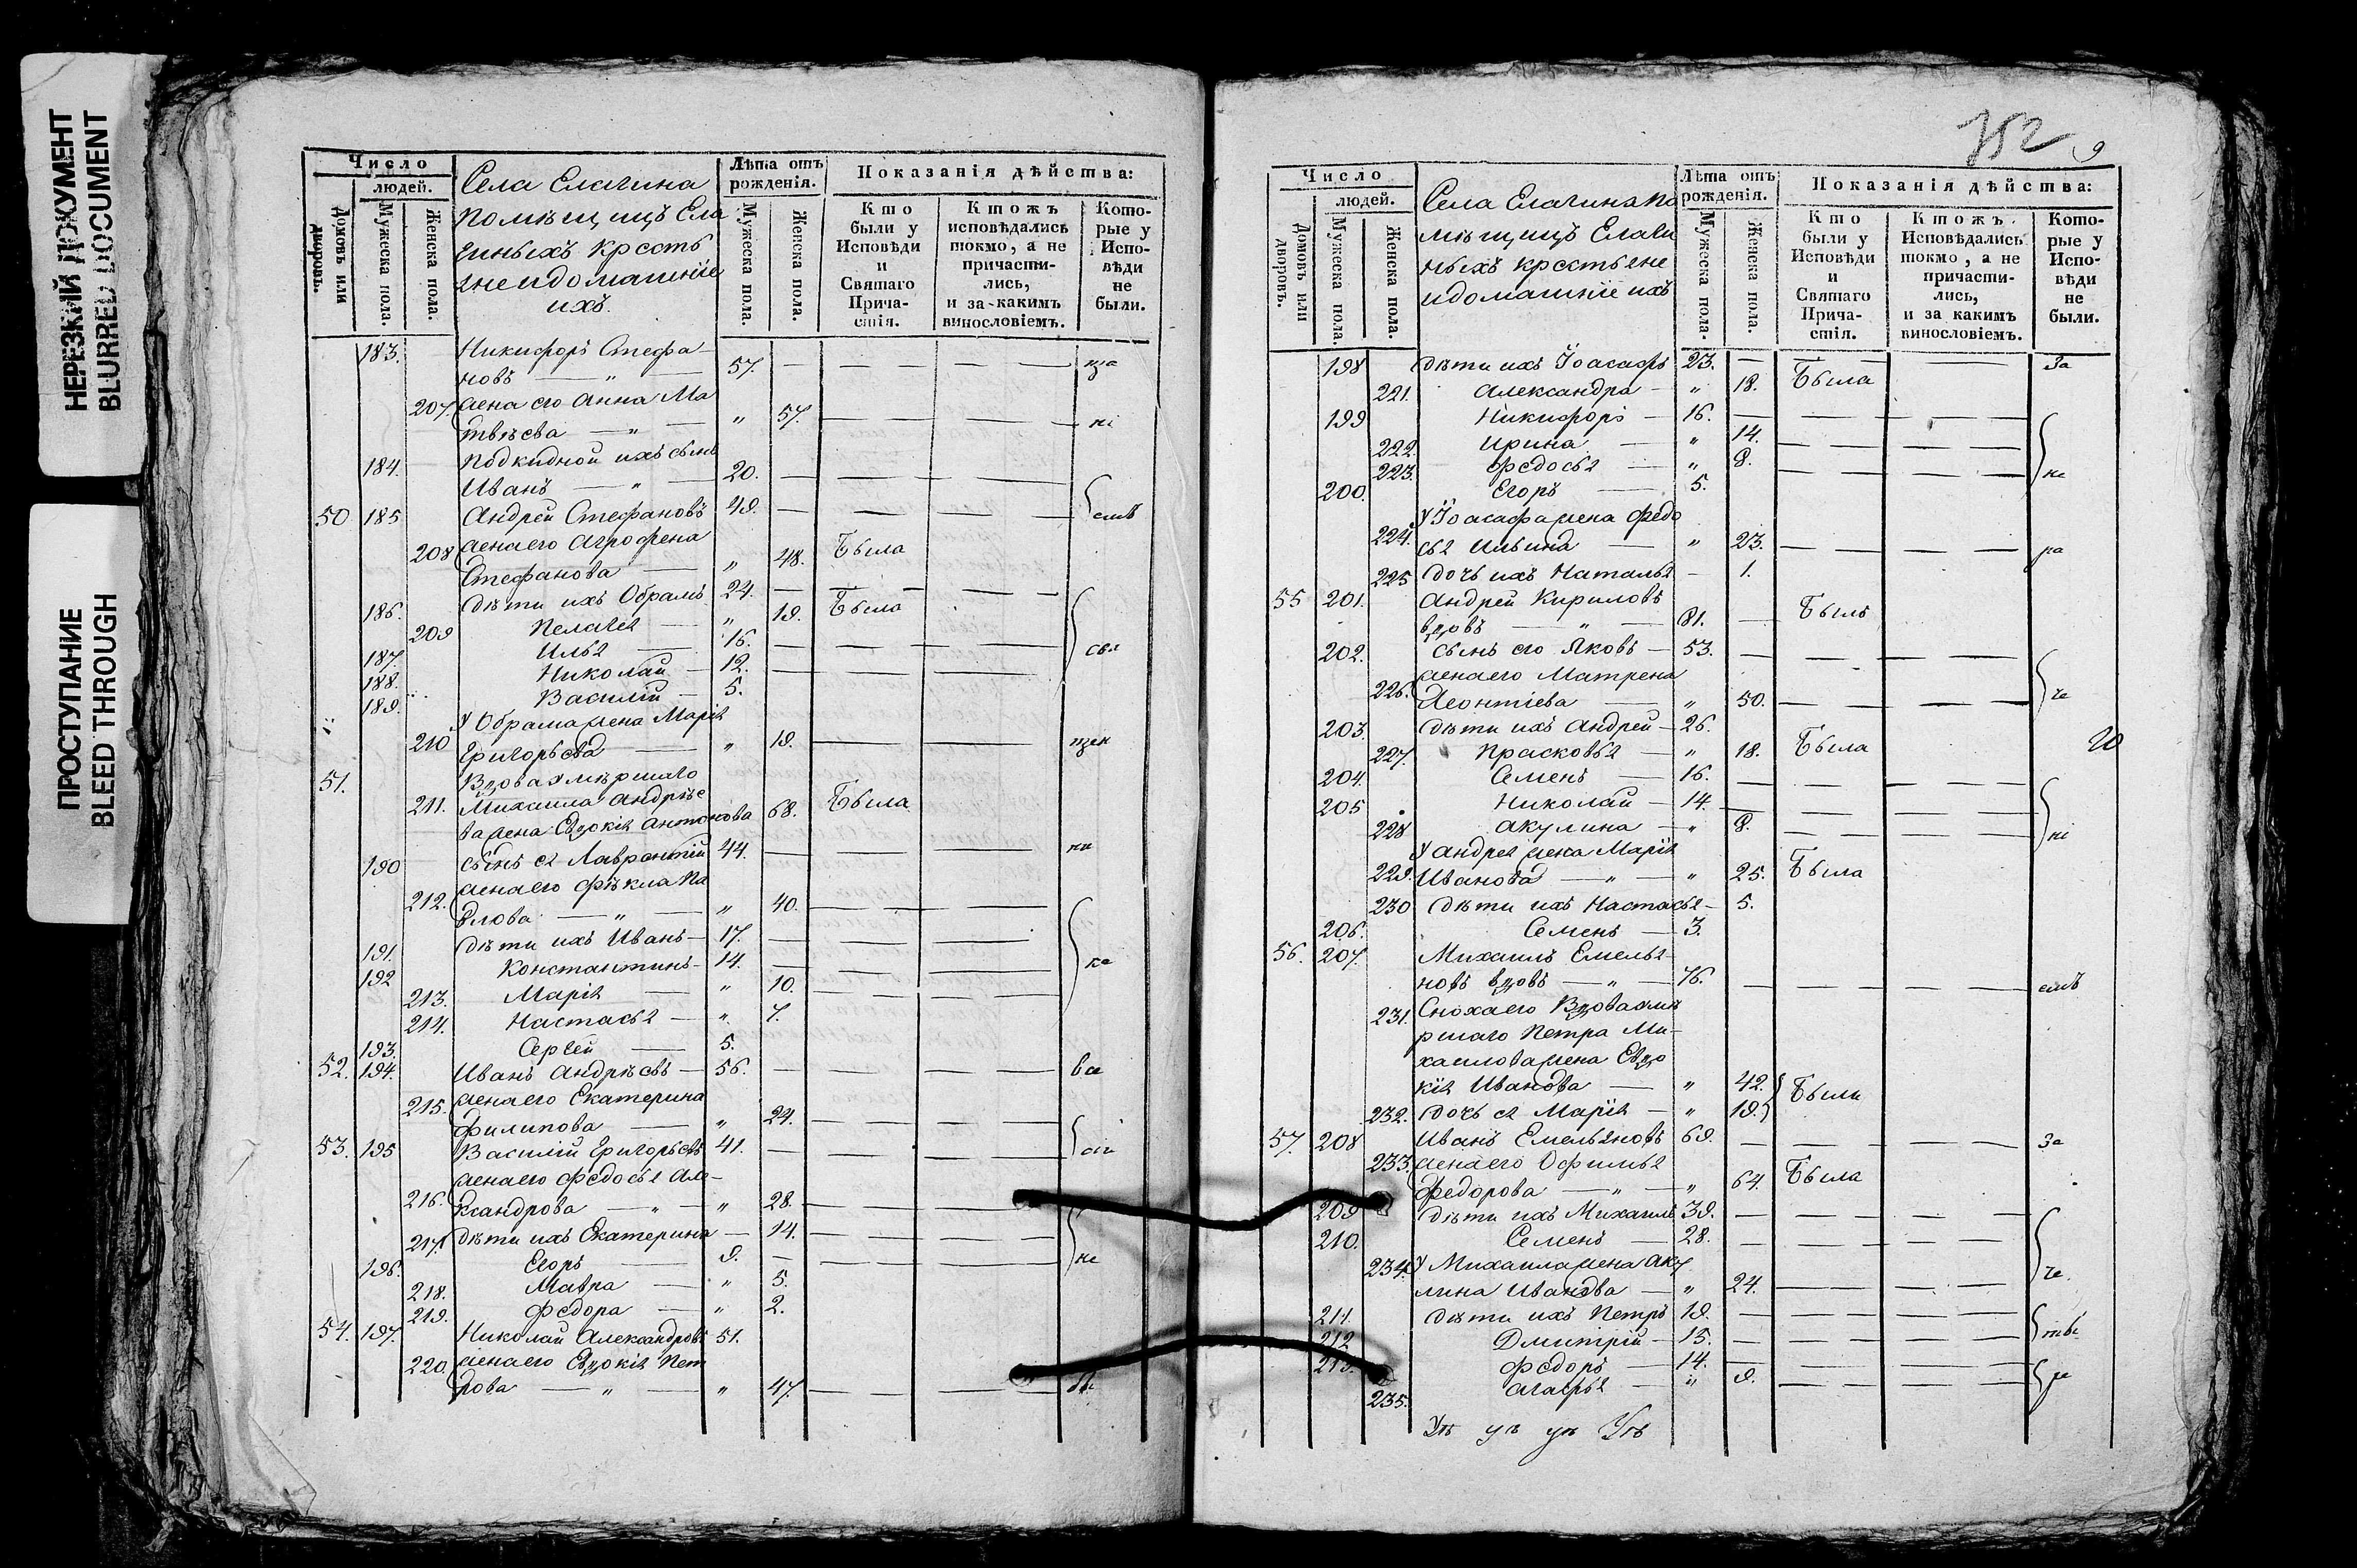 НЕРЕЗКИЙ ДОКУМЕНТ
BLURRED DOCUMENT
ПРОСТУПАНИЕ
BLEED THROUGH
Число
людей.
Домовъ или дворовъ.
Мужеска пола.
Женска пола.
Села Елагина
помѣщицъ Ела
гиныхъ крестья
яне и домашніе
ихъ.
Лѣта отъ рожденія.
Мужеска пола.
Женска пола.
Показанія дѣйства:
Кто были у Исповѣди и Святаго Причастія.
Ктожъ исповѣдались токмо, а не причастились, и за какимъ винословіемъ.
Которые у Исповѣди не были.
183. Никифоръ Стефа-
новъ — „ — 57.
207. жена его Анна Ма
твѣева — „ — „ 57.
184. Подкидной ихъ сынъ
Иванъ — „ — 20.
50 185 Андрей Стефановъ 49.
208 жена его Агрофена
Стефанова — „ 48. Была
186. дѣти ихъ Обрамъ 24.
209 Пелагея — „ 19. Была
187. Илья — 16.
188. Николай — 12.
189. Василій — 5.
У Обрама жена Марія
210 Григорьева — „ 19.
51. Вдова умершаго
211. Михаила Андрѣе
ва жена Евдокія Антонова 68. Была
190 сынъ ея Лаврентій 44.
212. жена его Фекла Па
влова — „ — „ 40.
191. дѣти ихъ Иванъ — 17.
192 Константинъ — 14.
213. Марія — „ 10.
214. Настасья — „ 7.
193. Сергей — 5.
52. 194. Иванъ Андрѣевъ — 56.
215. жена его Екатерина
Филипова — „ 24.
53. 195 Василій Григорьевъ 41.
жена его Федосья Але-
216. ксандрова — „ — „ 28.
217. дѣти ихъ Екатерина — 14.
196. Егоръ — 9.
218. Мавра — „ 5.
219. Федора — „ 2.
54. 197. Николай Александровъ 51.
220. жена его Евдокія Пет
рова — „ — „ 47.
752 9
Число
людей.
Домовъ или дворовъ.
Мужеска пола.
Женска пола.
Села Елагина по
мѣщицъ Елаги
ныхъ крестьяне
и домашніе ихъ
Лѣта отъ рожденія.
Мужеска пола.
Женска пола.
Показанія дѣйства:
Кто были у Исповѣди и Святаго Причастія.
Ктожъ Исповѣдались токмо, а не причастились, и за какимъ винословіемъ.
Которые у Исповѣди не были.
198 дѣти ихъ Іоасафъ 23. — За
221. Александра — „ 18. Была
199 Никифоръ — 16.
222. Ирина — „ 14.
223. Федосья — „ 8.
200. Егоръ — 5.
У Іоасафа жена Федо
224. сья Ильина — „ 23.
225 дочь ихъ Наталья — 1.
55 201. Андрей Кириловъ
вдовъ — „ — 81. Былъ
202. сынъ его Яковъ — 53.
жена его Матрена
226. Леонтіева — „ 50.
203. дѣти ихъ Андрей — 26.
227. Прасковья — „ 18. Была
20
204. Семенъ — 16.
205 Николай — 14.
228 Акулина — „ 8.
У Андрея жена Марія
229. Иванова — „ — „ 25. Была
230 дѣти ихъ Настасья — 5.
206. Семенъ — 3.
56. 207. Михаилъ Емелья-
новъ вдовъ — „ — 76.
231. Сноха его Вдова уме
ршаго Петра Ми-
хаилова жена Евдо
кія Иванова — „ 42. Были
232. дочь ея Марія — „ 19.
57. 208 Иванъ Емельяновъ 69. За
233. жена его Офимья
Федорова — „ — „ 64. Была
209 дѣти ихъ Михаилъ 39.
210. Семенъ — 28.
234. У Михаила жена Аку
лина Иванова — „ 24.
211 дѣти ихъ Петръ 19.
212 Дмитрій — 15.
213. Федоръ — 14.
235. Агафья — „ 9.